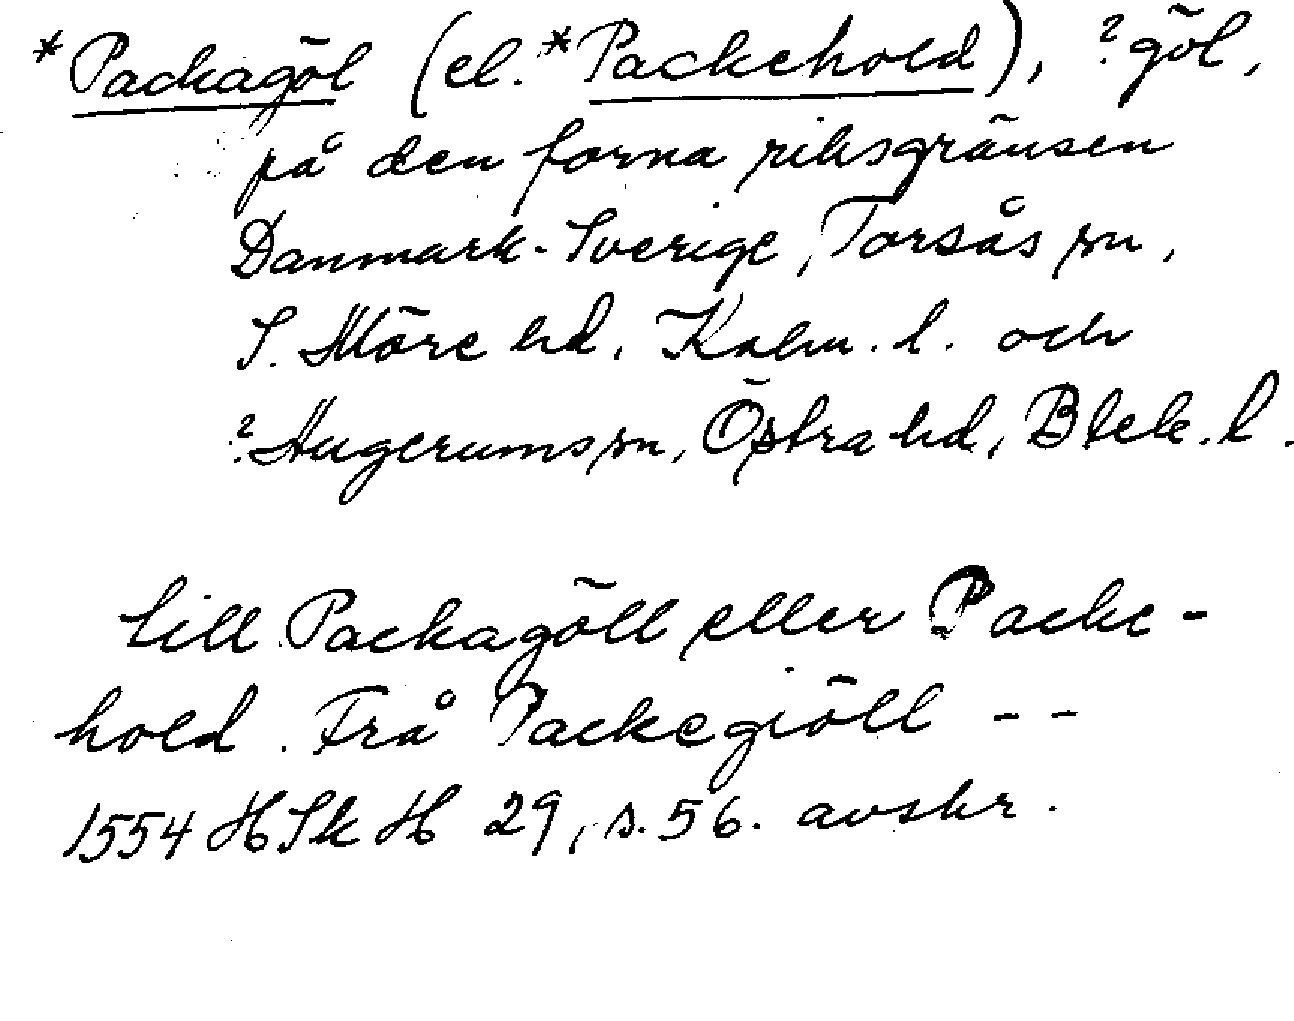 *Packagöl (el. *Packehold), ?göl,
på den forna riksgränsen
Danmark-Sverige, Torsås sn,
S. Möre hd, Kalm. l. och
?Augerums sn, Östra hd, Blek. l.
till Packagöll eller Packe-
hold. Frå Packegiöll - -
1554 HSkH 29, s. 56. avskr.